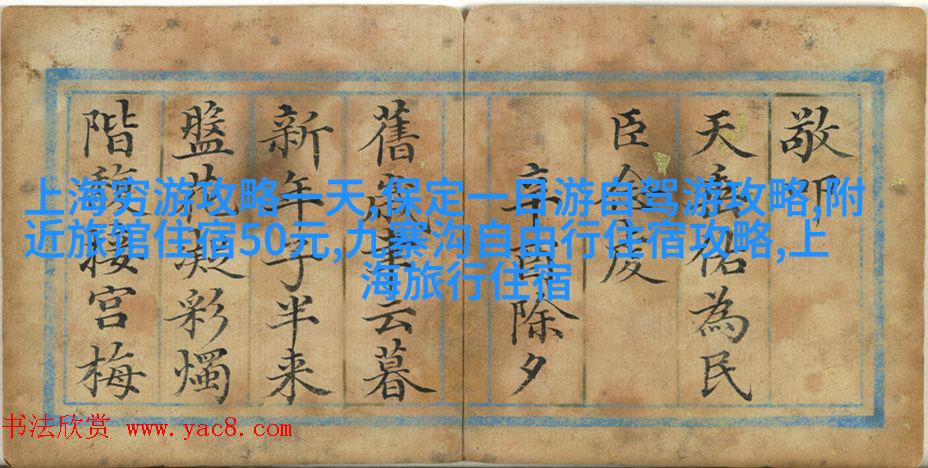 上海穷游攻略一天,保定一日游自驾游攻略,附
近旅馆住宿50元,九寨沟自由行住宿攻略,上
海旅行住宿
敬
天祐為民
臣
辛酉除夕
舊歲云暮
新年子半来
盤花凝彩燭
階馥宮梅
书法欣赏 www.yac8.com